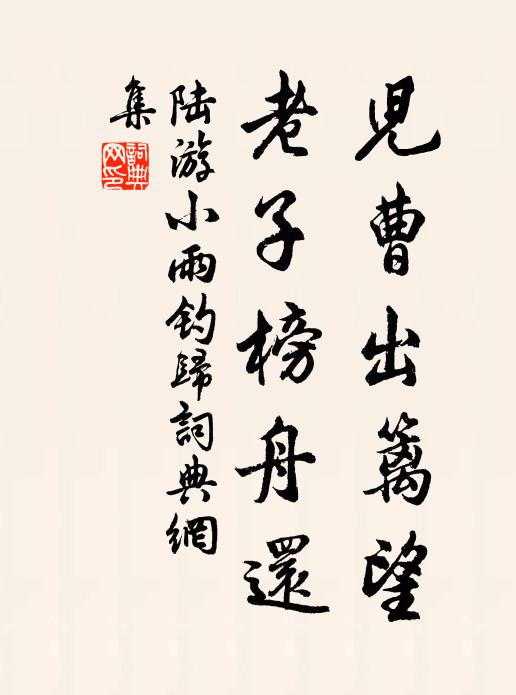 兒曹出籬望
老子榜舟還
陆游小雨钓歸詞典網
集
詞典網印